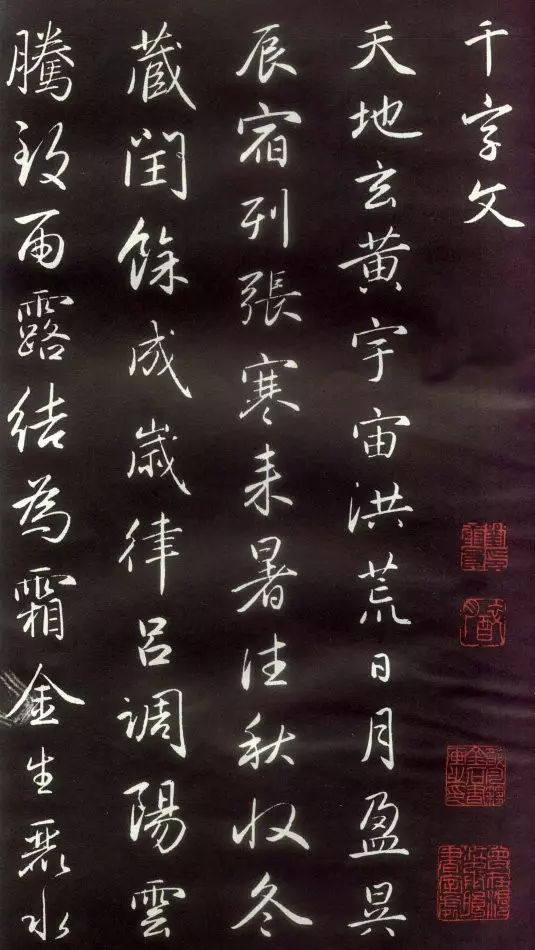 千字文
天地玄黃宇宙洪荒日月盈昃
辰宿列張寒来暑往秋收冬
蔵閏餘成歲律呂調陽雲
騰致雨露結為霜金生麗水